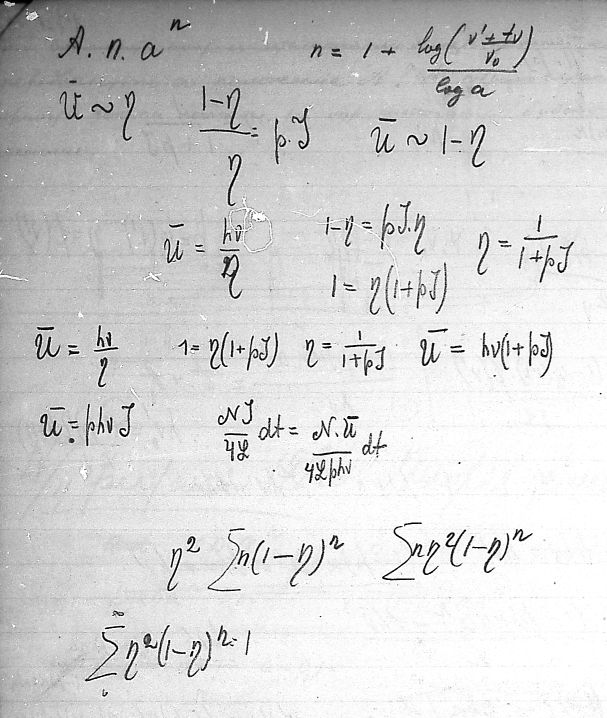 A. n. aⁿ n = 1 + log((ν' + fν)/ν₀)/log a
Ū ~ η (1-η)/η = p.J Ū ~ 1-η
Ū = hν/η 1-η = pJ.η η = 1/(1+pJ)
1 = η(1+pJ)
Ū = hν/η 1 = η(1+pJ) η = 1/(1+pJ) Ū = hν(1+pJ)
Ū = phνJ NJ/4L dt = N.Ū/4Lphν dt
η² Σn(1-η)ⁿ Σnη²(1-η)ⁿ
Ση²(1-η)ⁿ = 1